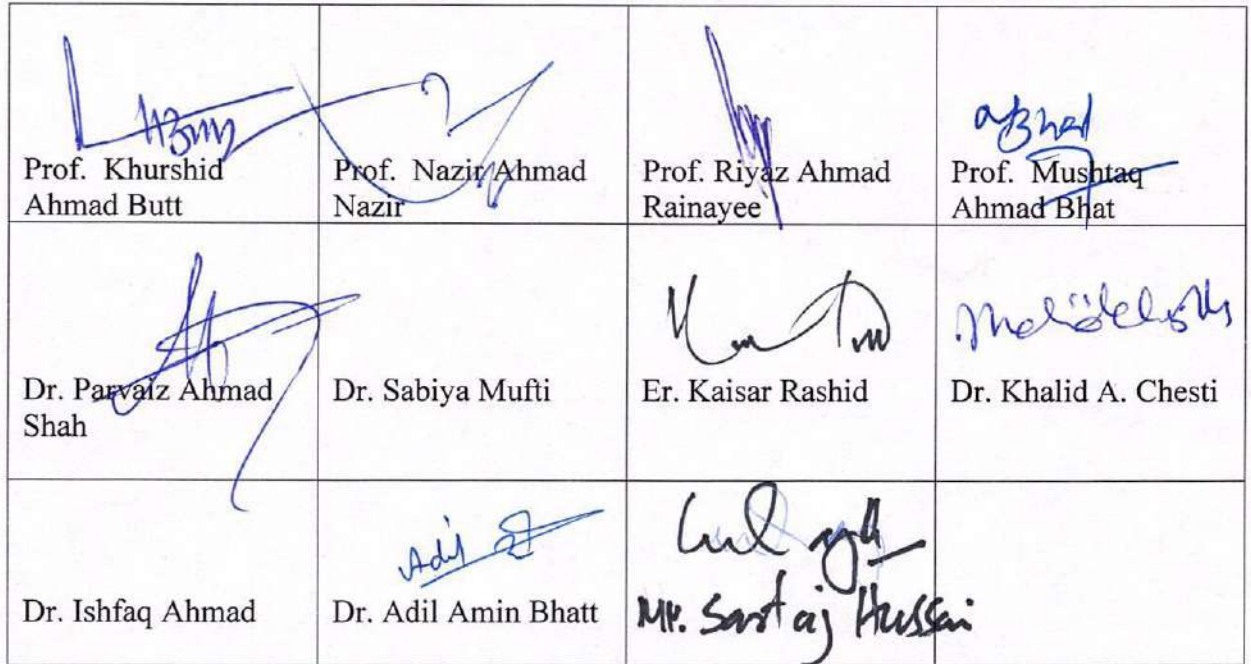 Prof. Khurshid
Ahmad Butt
Prof. Nazir Ahmad
Nazir
Prof. Riyaz Ahmad
Rainayee
Prof. Mushtaq
Ahmad Bhat
Dr. Parvaiz Ahmad
Shah
Dr. Sabiya Mufti
Er. Kaisar Rashid
Dr. Khalid A. Chesti
Dr. Ishfaq Ahmad
Adil
Dr. Adil Amin Bhatt
Mr. Sartaj Hussain